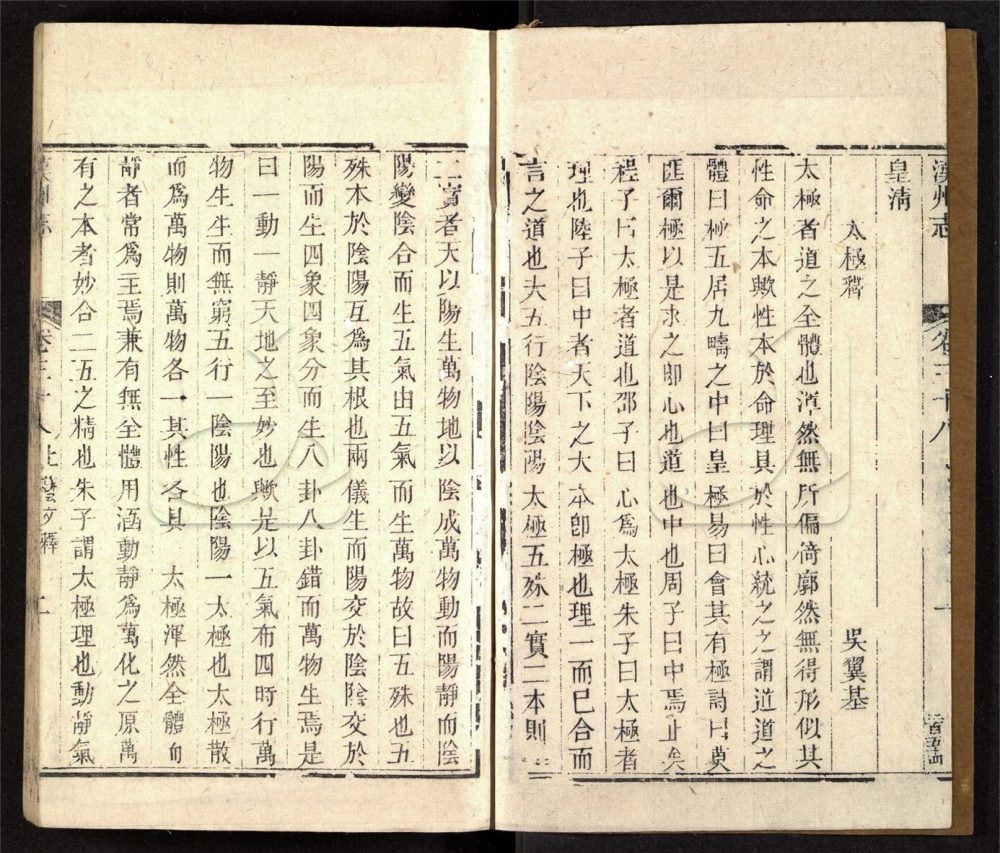 漢州志
皇清
太極釋
吳翼基
太極者道之全體也渾然無所偏倚廓然無得形似其
性命之本歟性本於命理具於性心統之之謂道道之
體曰極五居九疇之中曰皇極易曰會其有極詩曰莫
匪爾極以是求之卽心也道也中也周子曰中焉止矣
程子曰太極者道也邵子曰心爲太極朱子曰太極者
理也陸子曰中者天下之大本卽極也理一而已合而
言之道也夫五行陰陽陰陽太極五殊二實二本則一
二實者天以陽生萬物地以陰成萬物動而陽靜而陰
陽變陰合而生五氣由五氣而生萬物故曰五殊也五
殊本於陰陽互爲其根也兩儀生而陽交於陰陰交於
陽而生四象四象分而生八卦八卦錯而萬物生焉是
曰一動一靜天地之至妙也歟是以五氣布四時行萬
物生生而無窮五行一陰陽也陰陽一太極也太極散
而爲萬物則萬物各一其性各具 太極渾然全體而
靜者常爲主焉兼有無全體用涵動靜爲萬化之原萬
有之本者妙合二五之精也朱子謂太極理也動靜氣
漢州志 卷三十八上 藝文釋 二